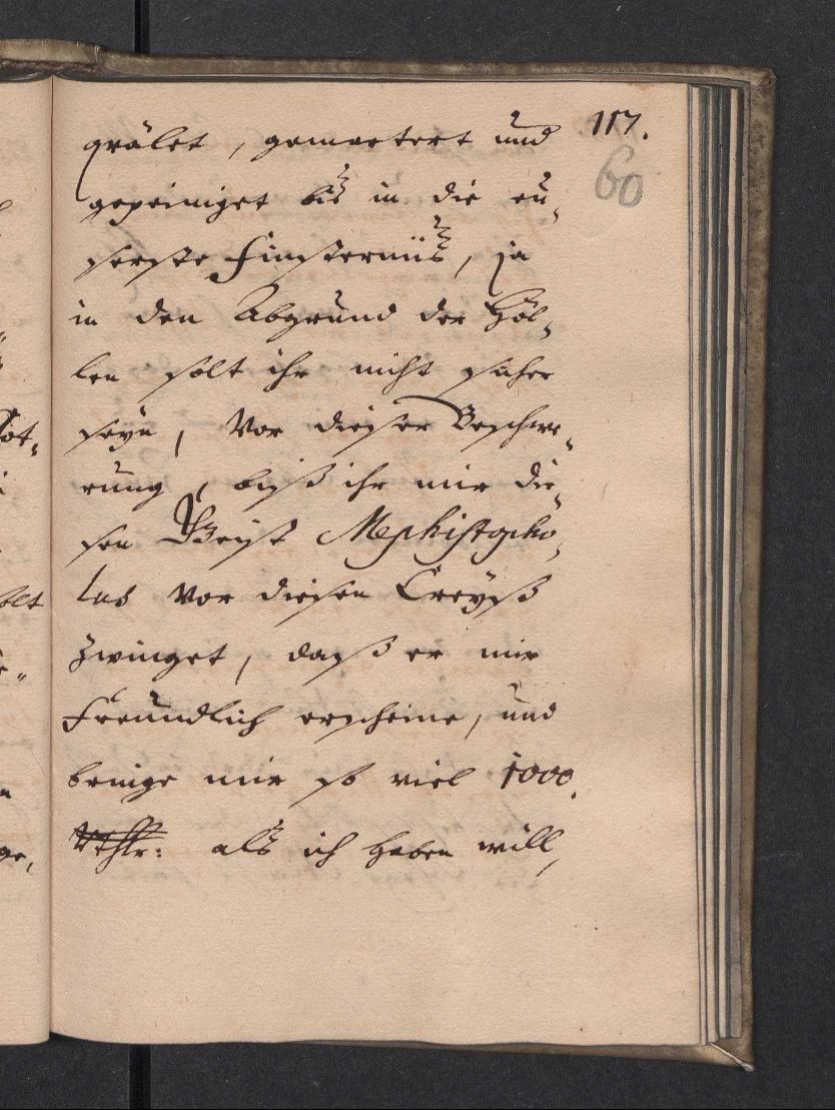 117.
60
qvälet, gemartert und
gepeiniget bis in die eu„
serste Finsternüs, ja
in den Abgrund der Höl„
len solt ihr nicht sicher
seyn, Vor dieser Beschwe„
rung, biß ihr mir die„
sen Geist Mephistopho„
lus vor diesen Creyß
Zwinget, daß er mir
Freundlich erscheine, und
bringe mir so viel 1000.
Rthlr: als ich haben will,